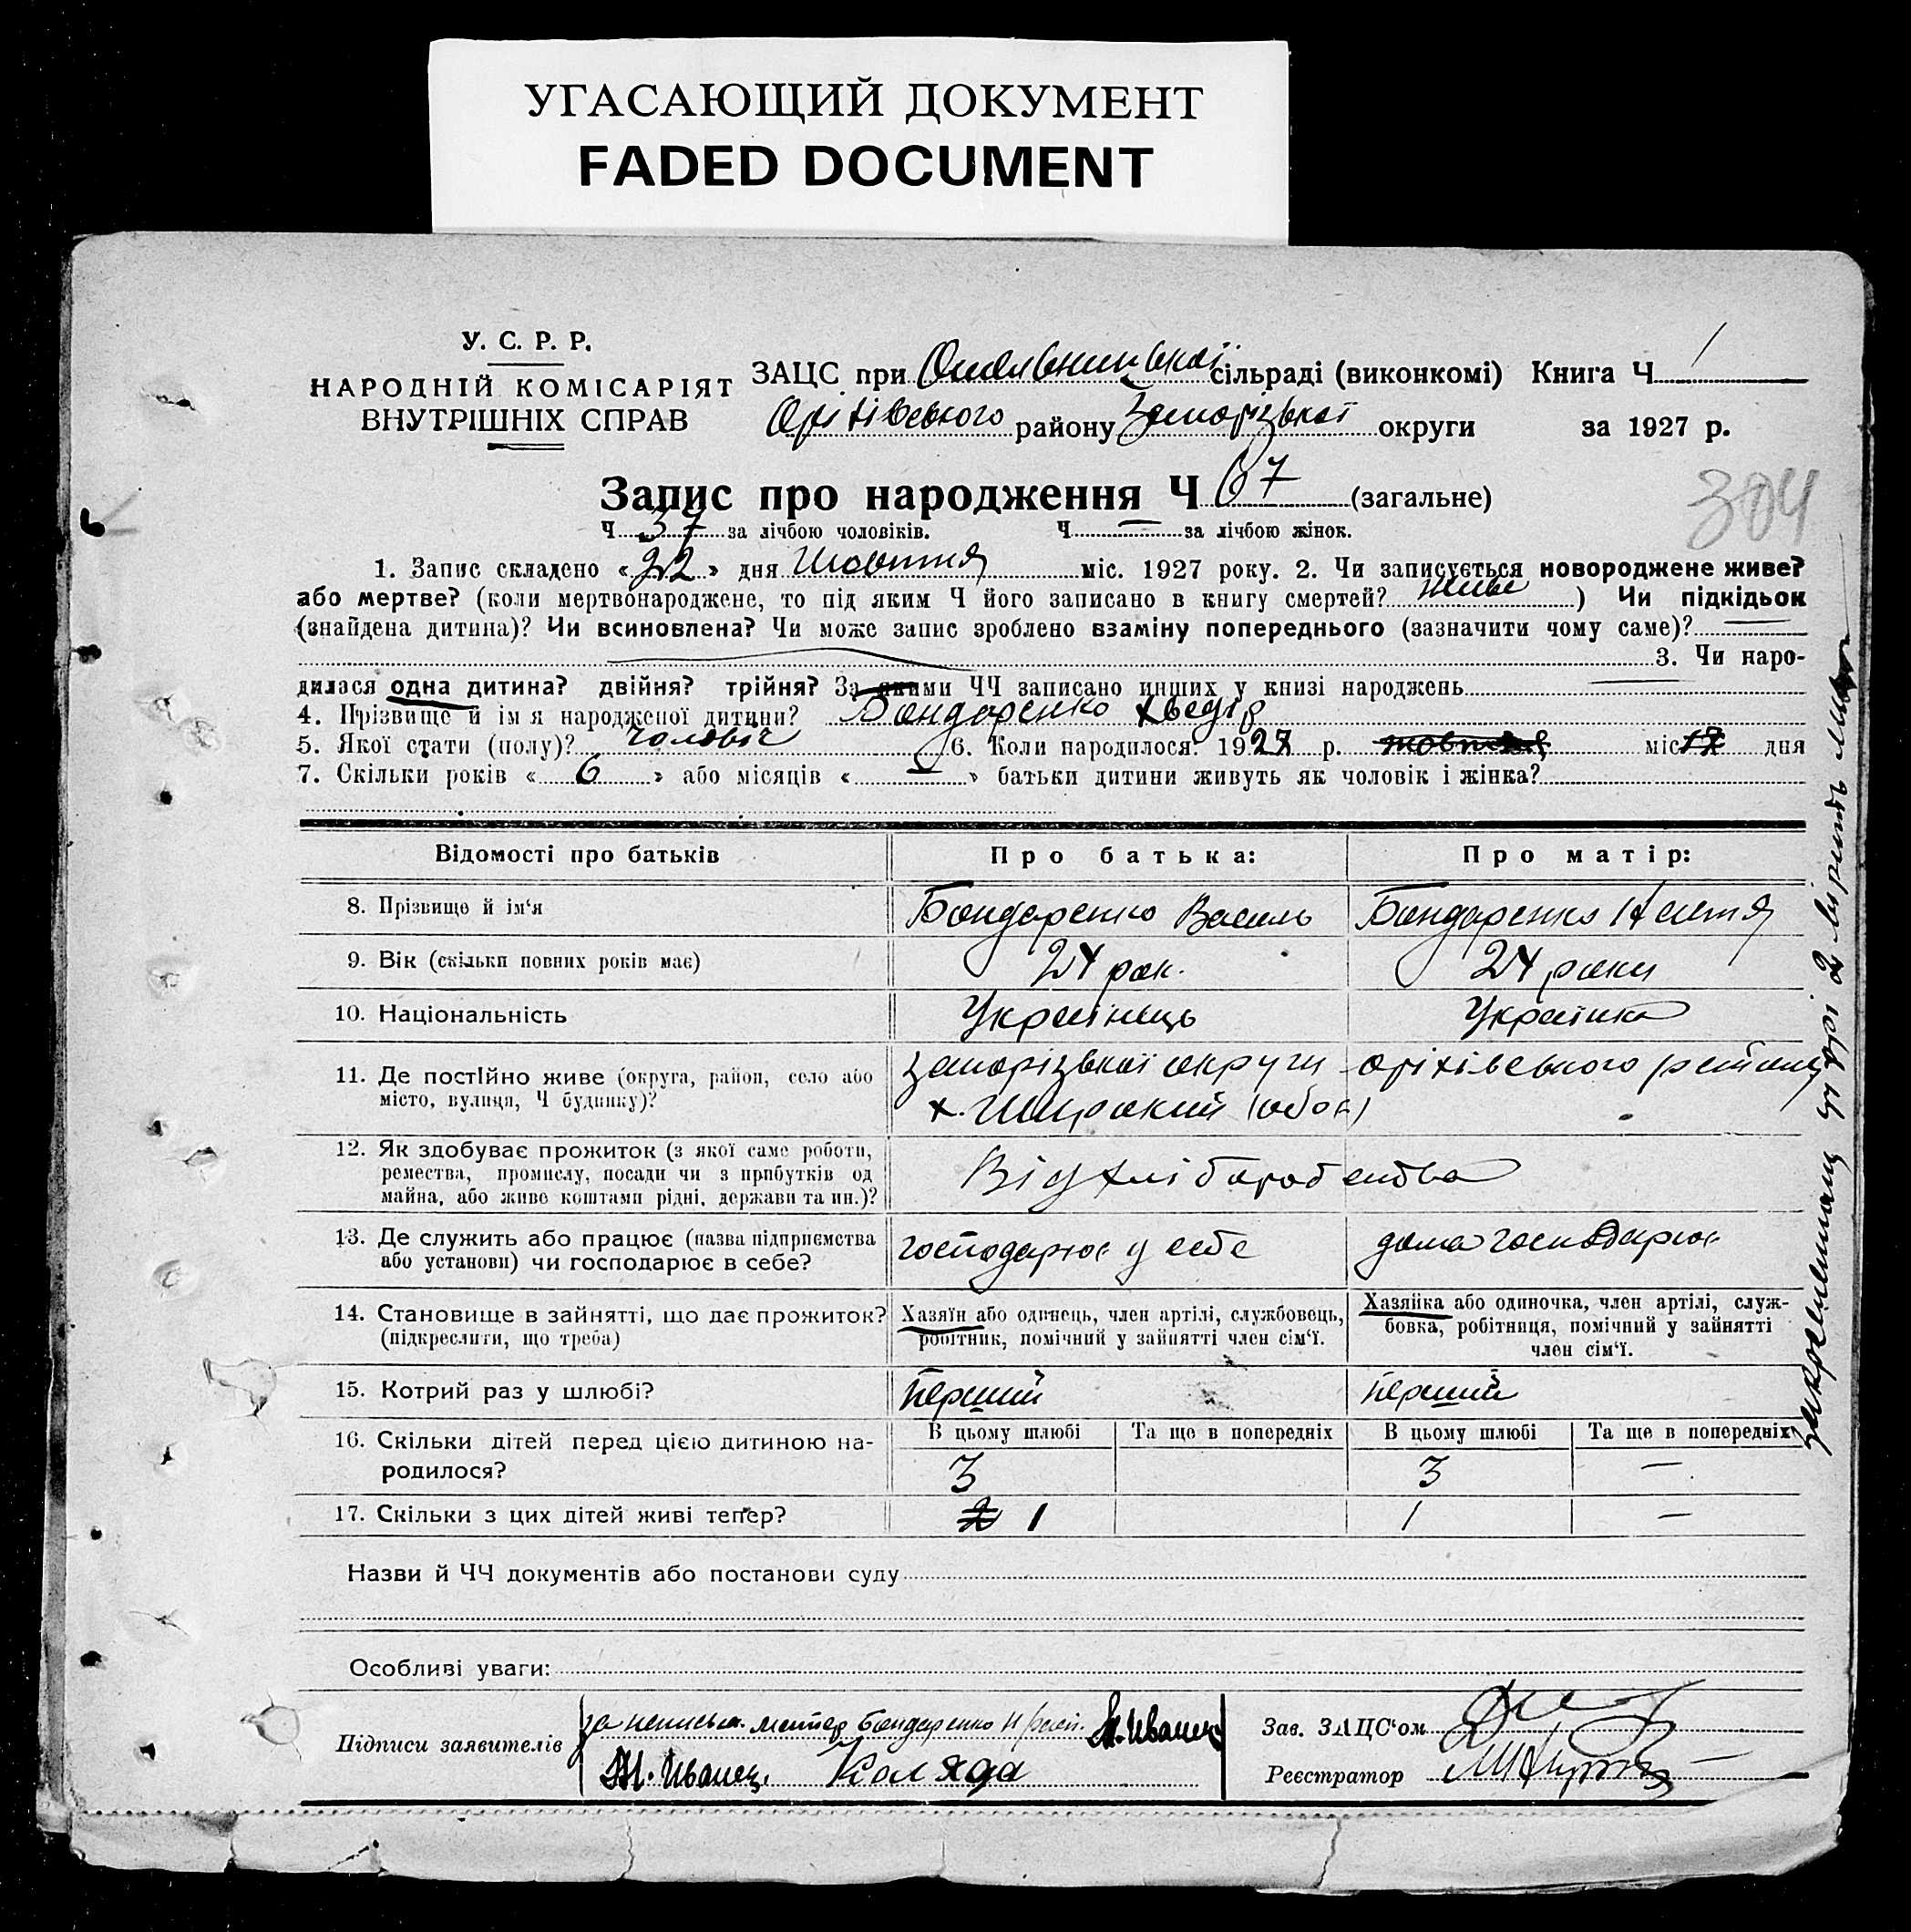 УГАСАЮЩИЙ ДОКУМЕНТ
FADED DOCUMENT
У. С. Р. Р.
НАРОДНІЙ КОМІСАРІЯТ
ВНУТРІШНІХ СПРАВ
ЗАЦС при сільраді (виконкомі) Книга Ч 1
Оріхівського району Запорізької округи за 1927 р.
304
Запис про народження Ч 67 (загальне)
Ч 37 за лічбою чоловіків. Ч — за лічбою жінок.
1. Запис складено « 22 » дня Жовтня міс. 1927 року. 2. Чи записується новороджене живе?
або мертве? (коли мертвонароджене, то під яким Ч його записано в книгу смертей? живе ) Чи підкідьок
(знайдена дитина)? Чи всиновлена? Чи може запис зроблено взаміну попереднього (зазначити чому саме)? —
3. Чи наро-
дилася одна дитина? двійня? трійня? За якими ЧЧ записано инших у книзі народжень —
4. Прізвище й ім'я народженої дитини? Бондаренко Хведір
5. Якої стати (полу)? чоловіч 6. Коли народилося: 1927 р. жовтня міс 17 дня
7. Скільки років « 6 » або місяців « — » батьки дитини живуть як чоловік і жінка?
Відомості про батьків Про батька: Про матір:
8. Прізвище й ім'я Бондаренко Василь Бондаренко Настя
9. Вік (скільки повних років має) 24 рок. 24 роки
10. Національність Українець Українка
11. Де постійно живе (округа, район, село або місто, вулиця, Ч будинку)? Запорізької округи оріхівського району
х. Широкий (обоє)
12. Як здобуває прожиток (з якої саме роботи,
ремества, промислу, посади чи з прибутків од
майна, або живе коштами рідні, держави та ин.)? Від хліборобства
13. Де служить або працює (назва підприємства
або установи) чи господарює в себе? господарює у себе дома господарює
14. Становище в зайнятті, що дає прожиток?
(підкреслити, що треба)
Хазяїн або одинець, член артілі, службовець,
робітник, помічний у зайнятті член сім'ї.
Хазяйка або одиночка, член артілі, служ-
бовка, робітниця, помічний у зайнятті
член сім'ї.
15. Котрий раз у шлюбі? перший перший
16. Скільки дітей перед цією дитиною на-
родилося?
В цьому шлюбі Та ще в попередніх В цьому шлюбі Та ще в попередніх
3 3 —
17. Скільки з цих дітей живі тепер? 2 1 1 —
Назви й ЧЧ документів або постанови суду
Особливі уваги:
Підписи заявителів
за неписьм. матер Бондаренко Н М. Иванец
М. Иванец. Коляда
Зав. ЗАЦС'ом
Реєстратор